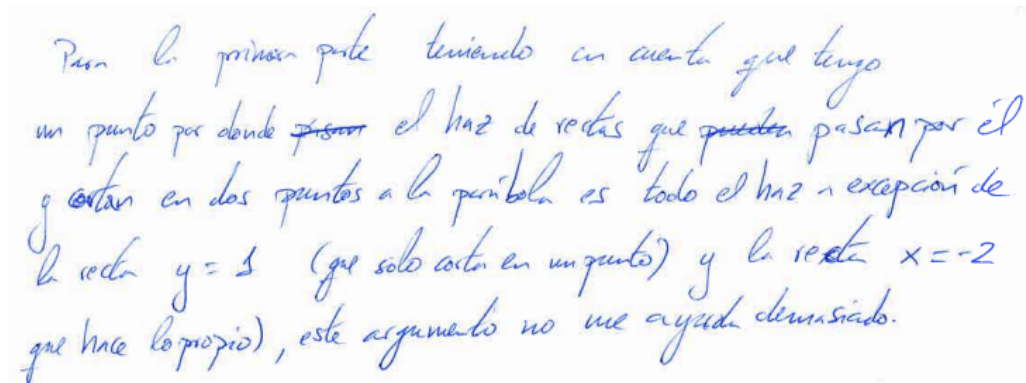 Para la primera parte teniendo en cuenta que tengo
un punto por donde pasan el haz de rectas que pueden pasan por él
y cortan en dos puntos a la parábola es todo el haz a excepción de
la recta y = 1 (que solo corta en un punto) y la recta x = -2
que hace lo propio), este argumento no me ayuda demasiado.